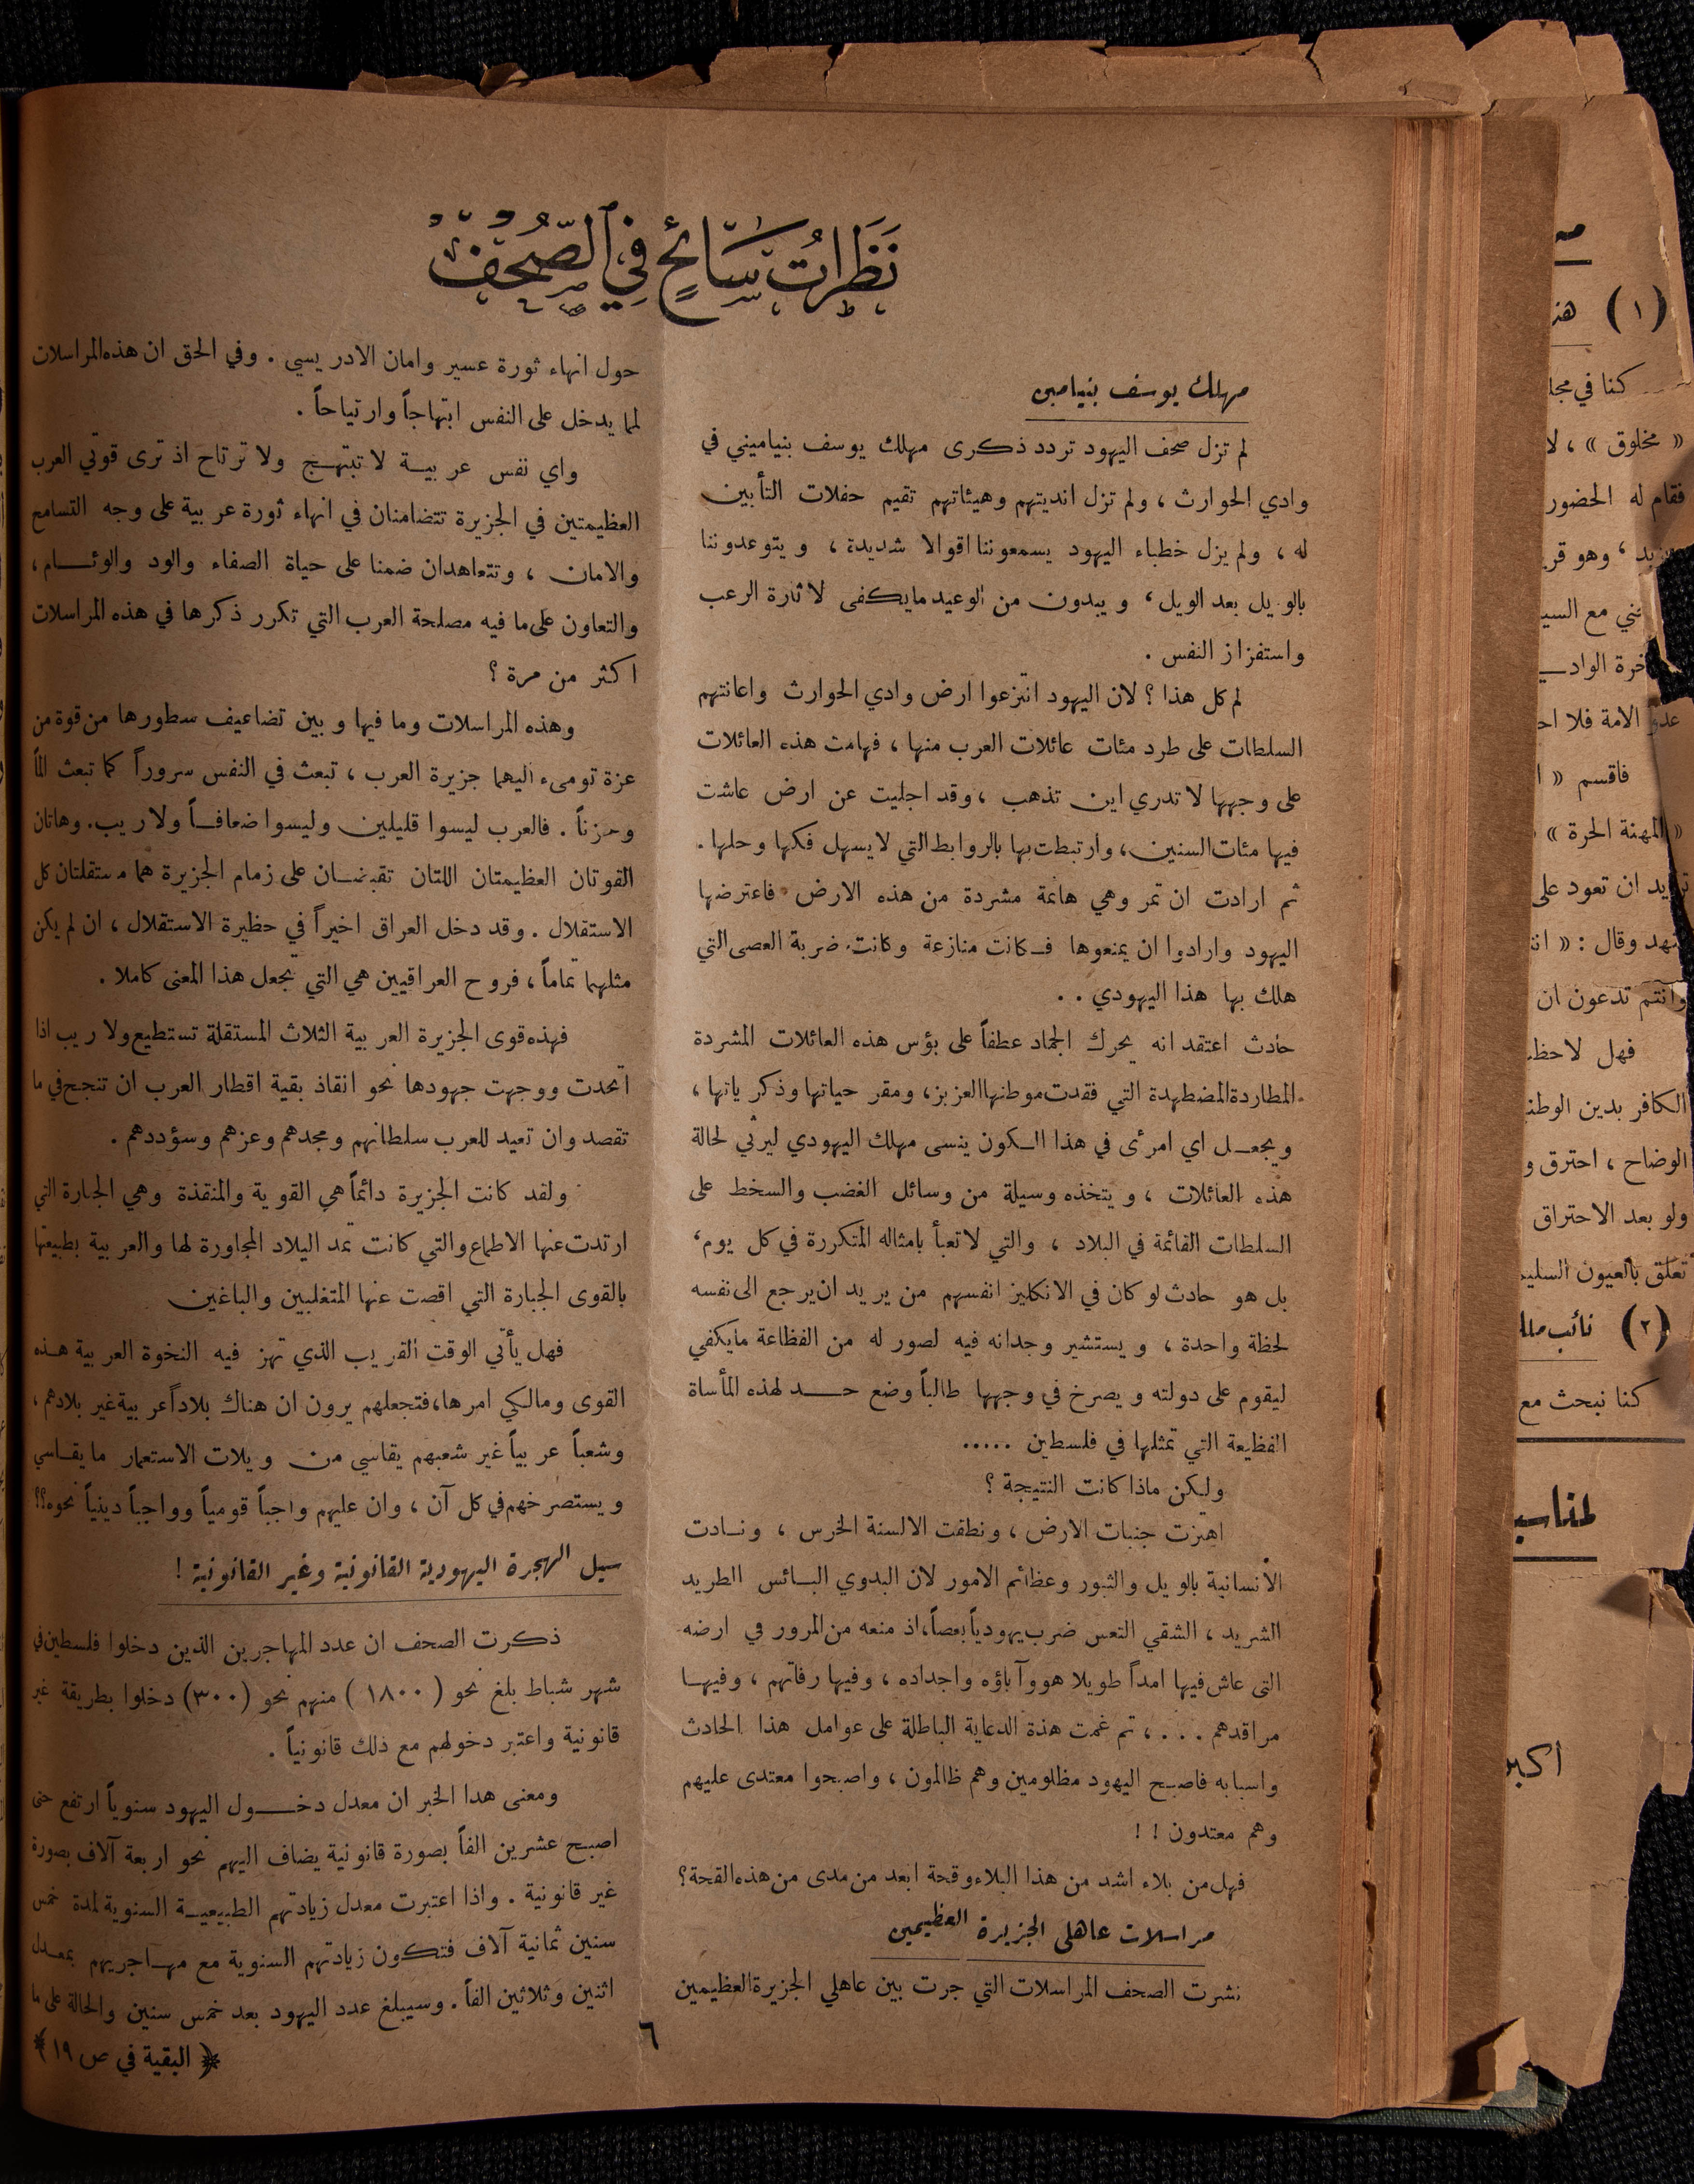 نَظَرَاتُ سَائِحٍ فِي الصُّحُف
مهلك يوسف بنيامين
لم تزل صحف اليهود تردد ذكرى مهلك يوسف بنياميني في
وادي الحوارث ، ولم تزل انديتهم وهيئاتهم تقيم حفلات التأبين
له ، ولم يزل خطباء اليهود يسمعوننا اقوالا شديدة ، ويتوعدوننا
بالويل بعد الويل ، ويبدون من الوعيد مايكفى لاثارة الرعب
واستفزاز النفس .
لم كل هذا ؟ لان اليهود انتزعوا ارض وادي الحوارث واعانتهم
السلطات على طرد مئات عائلات العرب منها ، فهامت هذه العائلات
على وجهها لا تدري اين تذهب ، وقد اجليت عن ارض عاشت
فيها مئات السنين، وارتبطت بها بالروابط التي لايسهل فكها وحلها .
ثم ارادت ان تمر وهي هائمة مشردة من هذه الارض فاعترضها
اليهود وارادوا ان يمنعوها فكانت منازعة وكانت ضربة العصى التي
هلك بها هذا اليهودي . .
حادث اعتقد انه يحرك الجماد عطفاً على بؤس هذه العائلات المشردة
المطاردة المضطهدة التي فقدت موطنها العزيز، ومقر حياتها وذكرياتها ،
ويجعل اي امرئ في هذا الكون ينسى مهلك اليهودي ليرثي لحالة
هذه العائلات ، ويتخذه وسيلة من وسائل الغضب والسخط على
السلطات القائمة في البلاد ، والتي لاتعبأ بامثاله المتكررة في كل يوم ،
بل هو حادث لو كان في الانكليز انفسهم من يريد ان يرجع الى نفسه
لحظة واحدة ، ويستشير وجدانه فيه لصور له من الفظاعة مايكفي
ليقوم على دولته ويصرخ في وجهها طالباً وضع حد لهذه المأساة
الفظيعة التي تمثلها في فلسطين .....
ولكن ماذا كانت النتيجة ؟
اهتزت جنبات الارض ، ونطقت الالسنة الخرس ، ونادت
الأنسانية بالويل والثبور وعظائم الامور لان البدوي البائس الطريد
الشريد ، الشقي التعس ضرب يهودياً بعصا، اذ منعه من المرور في ارضه
التى عاش فيها امداً طويلا هووآباؤه واجداده ، وفيها رفاتهم ، وفيها
مراقدهم . . . ، ثم غمت هذة الدعاية الباطلة على عوامل هذا الحادث
واسبابه فاصبح اليهود مظلومين وهم ظالمون ، واصبحوا معتدى عليهم
وهم معتدون ! !
فهل من بلاء اشد من هذا البلاء وقحة ابعد من مدى من هذه القحة ؟
مراسلات عاهلي الجزيرة العظيمين
نشرت الصحف المراسلات التي جرت بين عاهلي الجزيرة العظيمين
حول انهاء ثورة عسير وامان الادريسي . وفي الحق ان هذه المراسلات
لمما يدخل على النفس ابتهاجاً وارتياحاً .
واي نفس عربية لا تبتهج ولا ترتاح اذ ترى قوتي العرب
العظيمتين في الجزيرة تتضامنان في انهاء ثورة عربية على وجه التسامح
والامان ، وتتعاهدان ضمنا على حياة الصفاء والود والوئام ،
والتعاون على ما فيه مصلحة العرب التي تكرر ذكرها في هذه المراسلات
اكثر من مرة ؟
وهذه المراسلات وما فيها وبين تضاعيف سطورها من قوة من
عزة تومىء اليهما جزيرة العرب ، تبعث في النفس سروراً كما تبعث الماً
وحزناً . فالعرب ليسوا قليلين وليسوا ضعافاً ولا ريب. وهاتان
القوتان العظيمتان اللتان تقبضان على زمام الجزيرة هما مستقلتان كل
الاستقلال . وقد دخل العراق اخيراً في حظيرة الاستقلال ، ان لم يكن
مثلهما تماماً ، فروح العراقيين هي التي تجعل هذا المعنى كاملا .
فهذه قوى الجزيرة العربية الثلاث المستقلة تستطيع ولا ريب اذا
اتحدت ووجهت جهودها نحو انقاذ بقية اقطار العرب ان تنجح في ما
تقصد وان تعيد للعرب سلطانهم ومجدهم وعزهم وسؤددهم .
ولقد كانت الجزيرة دائماً هي القوية والمنقذة وهي الجبارة التي
ارتدت عنها الاطماع والتي كانت تمد البلاد المجاورة لها والعربية بطبيعتها
بالقوى الجبارة التي اقصت عنها المتغلبين والباغين
فهل يأتي الوقت القريب الذي تهز فيه النخوة العربية هذه
القوى ومالكي امرها، فتجعلهم يرون ان هناك بلاداً عربية غير بلادهم ،
وشعباً عربياً غير شعبهم يقاسي من ويلات الاستعمار ما يقاسي
ويستصرخهم في كل آن ، وان عليهم واجباً قومياً وواجباً دينياً نحوه؟؟
سيل الهجرة اليهودية القانونية وغير القانونية !
ذكرت الصحف ان عدد المهاجرين الذين دخلوا فلسطين في
شهر شباط بلغ نحو ( ١٨٠٠ ) منهم نحو (٣٠٠) دخلوا بطريقة غير
قانونية واعتبر دخولهم مع ذلك قانونياً .
ومعنى هدا الخبر ان معدل دخول اليهود سنوياً ارتفع حتى
اصبح عشرين الفاً بصورة قانونية يضاف اليهم نحو اربعة آلاف بصورة
غير قانونية . واذا اعتبرت معدل زيادتهم الطبيعية السنوية لمدة خمس
سنين ثمانية آلاف فتكون زيادتهم السنوية مع مهاجريهم بمعدل
اثنين وثلاثين الفاً . وسيبلغ عدد اليهود بعد خمس سنين والحالة على ما
﴿ البقية في ص ١٩ ﴾
٦
(١) هن
كنا في مجا
« مخلوق » ، لا
فقام له الحضور
، وهو قر
ني مع السيـ
الامة فلا احـ
فاقسم « ا
« المهنة الحرة »
ان تعود على
وقال : « انـ
وانتم تدعون ان
فهل لاحظـ
الكافر بدين الوطنـ
الوضاح ، احترق و
ولو بعد الاحتراق
تعلق بالعيون السليمـ
(٢) نائب
كنا نبحث مع
لمناسبـ
أكبر